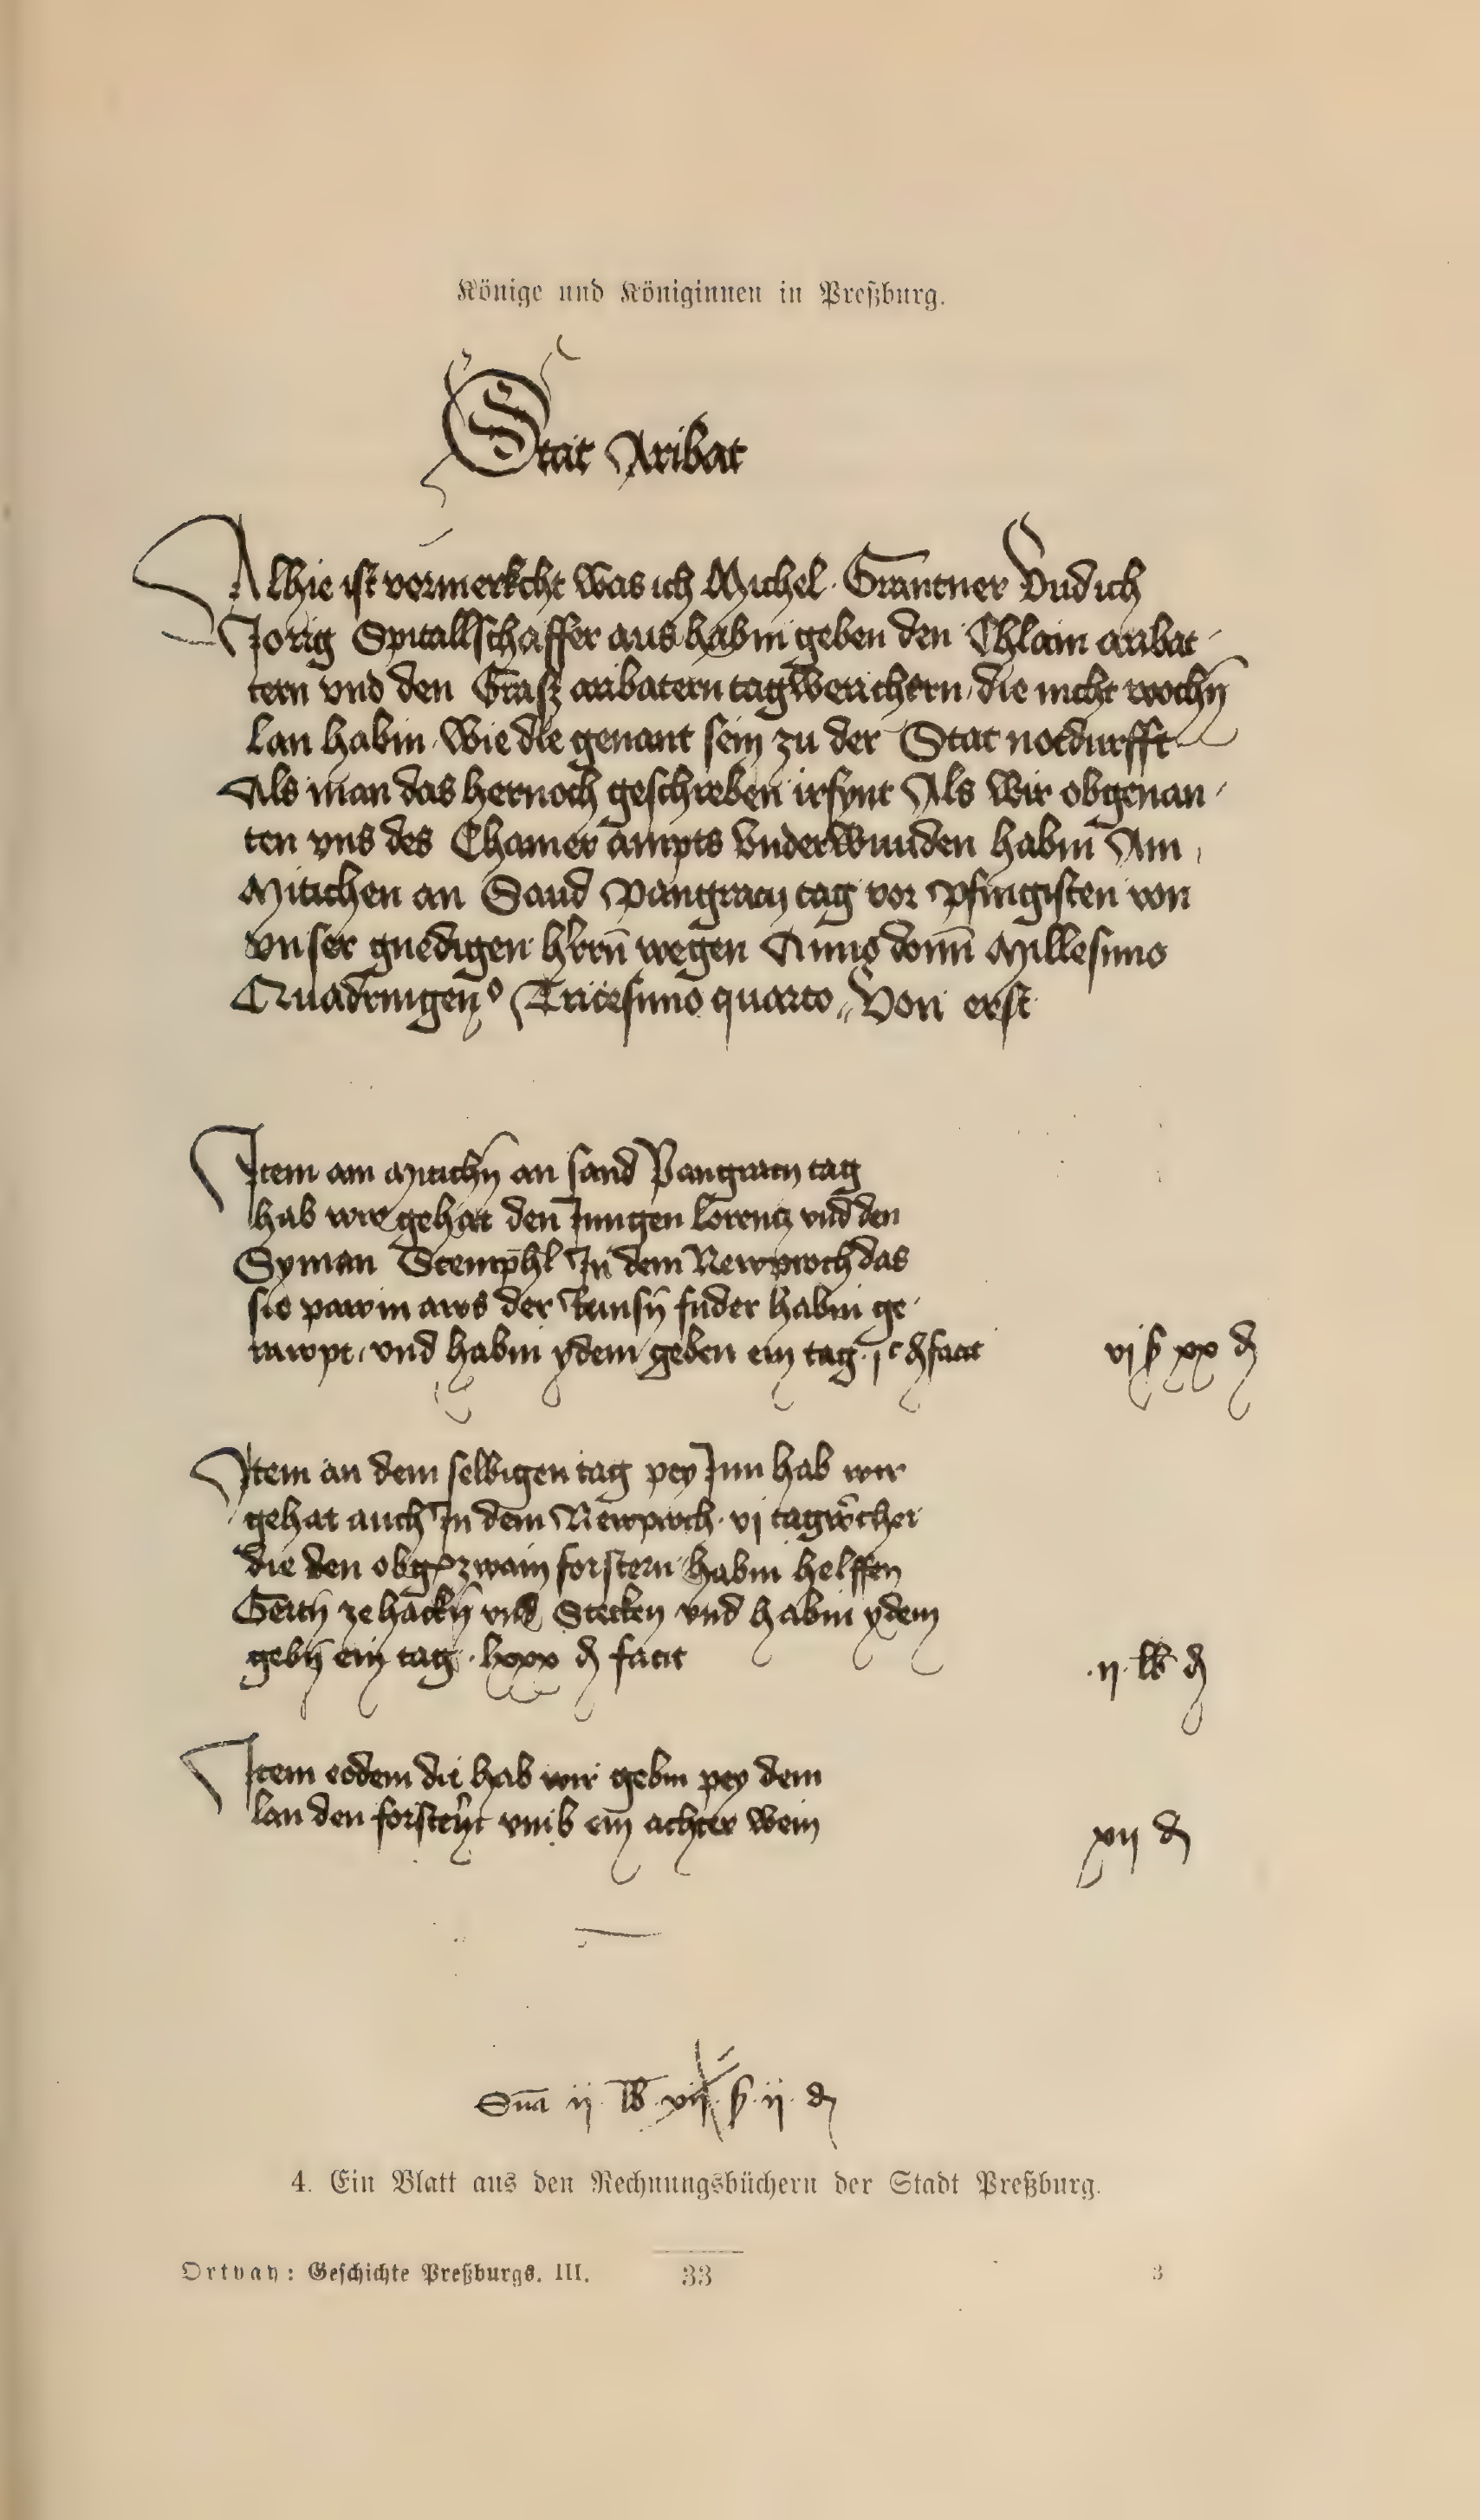 Könige und Königinnen in Preßburg.
Stat Aribat
Alhie ist vormerkcht was ich Michel Grantner Vnd ich
Jorig Spitallschaffer aus habm geben den Chlain aribat
tern vnd den Grasz aribatern tagwerichern die nicht wochn̄
lan habm wie die genant sein zu der Stat notdurfft
Als man das hernoch geschrieben irfynt Als wir obgenan
ten vns des Chamer ampts Vnderwunden habm Am
Mitichen an Sand Pangracy tag vor Pfingisten von
vnser gnedigen h'rrn̄ wegen Anno domī Millesimo
Quadringenº Tricesimo quarto Von erst
Item am Mitichn̄ an sand Pangracy tag
hab wir gehat den Jungen Lorencz vnd den
Syman Stemphl In dem Newpruch das
sie pawm aws der fuder habm ge
rawpt vnd habm ydem geben ein tag jᶜ ₰ facit
vj ß xx ₰
Item an dem selbigen tag pey Inn hab wir
gehat auch In dem Newpruch vj tagw'cher
die den obg zwain forstern habm helffen
Gertn̄ ze hackn̄ vnd Stecken vnd habm ydem
gebn̄ ein tag lxxx ₰ facit
ij lb ₰
Item eodem die hab wir gebm pey dem
lan den vmb ein achter wein
xij ₰
Sūa ij lb vij ß ij ₰
4. Ein Blatt aus den Rechnungsbüchern der Stadt Preßburg.
Ortvay: Geschichte Preßburgs. III. 33 3